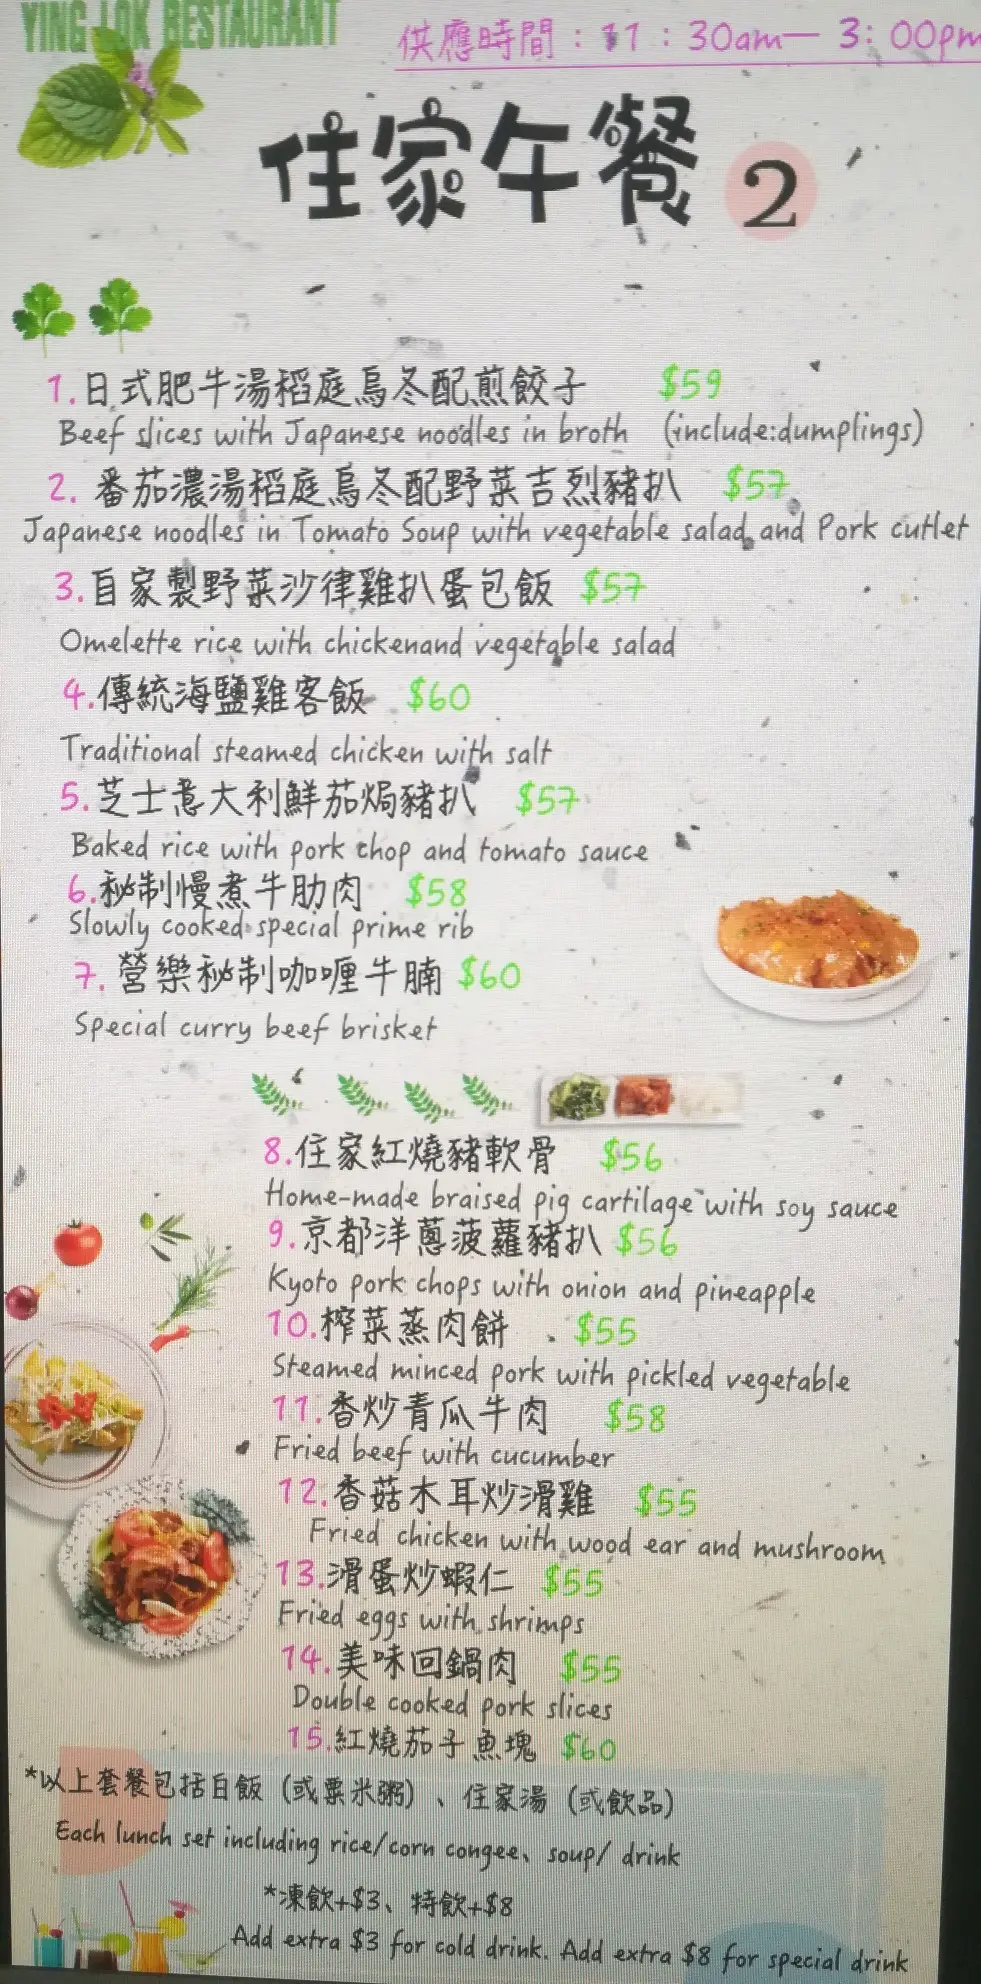 YING LOK RESTAURANT
供應時間：11：30am— 3：00pm
住家午餐 2
1.日式肥牛湯稻庭烏冬配煎餃子 $59
Beef slices with Japanese noodles in broth (include:dumplings)
2. 番茄濃湯稻庭烏冬配野菜吉烈豬扒 $57
Japanese noodles in Tomato Soup with vegetable salad and Pork cutlet
3.自家製野菜沙律雞扒蛋包飯 $57
Omelette rice with chickenand vegetable salad
4.傳統海鹽雞客飯 $60
Traditional steamed chicken with salt
5.芝士意大利鮮茄焗豬扒 $57
Baked rice with pork chop and tomato sauce
6.秘制慢煮牛肋肉 $58
Slowly cooked special prime rib
7. 營樂秘制咖喱牛腩 $60
Special curry beef brisket
8.住家紅燒豬軟骨 $56
Home-made braised pig cartilage with soy sauce
9.京都洋蔥菠蘿豬扒 $56
Kyoto pork chops with onion and pineapple
10.榨菜蒸肉餅 $55
Steamed minced pork with pickled vegetable
11.香炒青瓜牛肉 $58
Fried beef with cucumber
12.香菇木耳炒滑雞 $55
Fried chicken with wood ear and mushroom
13.滑蛋炒蝦仁 $55
Fried eggs with shrimps
14.美味回鍋肉 $55
Double cooked pork slices
15.紅燒茄子魚塊 $60
*以上套餐包括白飯（或粟米粥）、住家湯（或飲品）
Each lunch set including rice/corn congee、soup/ drink
*凍飲+$3、特飲+$8
Add extra $3 for cold drink. Add extra $8 for special drink